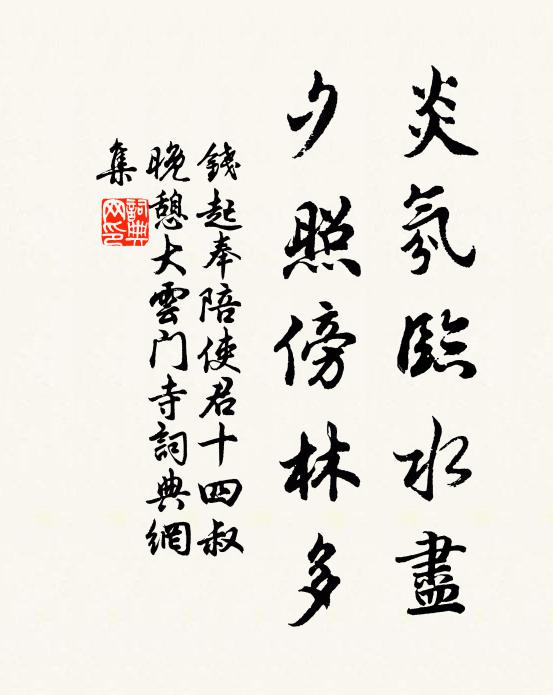 炎氛臨水盡
夕照傍林多
錢起奉陪使君十四叔
晚憩大雲门寺詞典網
集
詞典網印